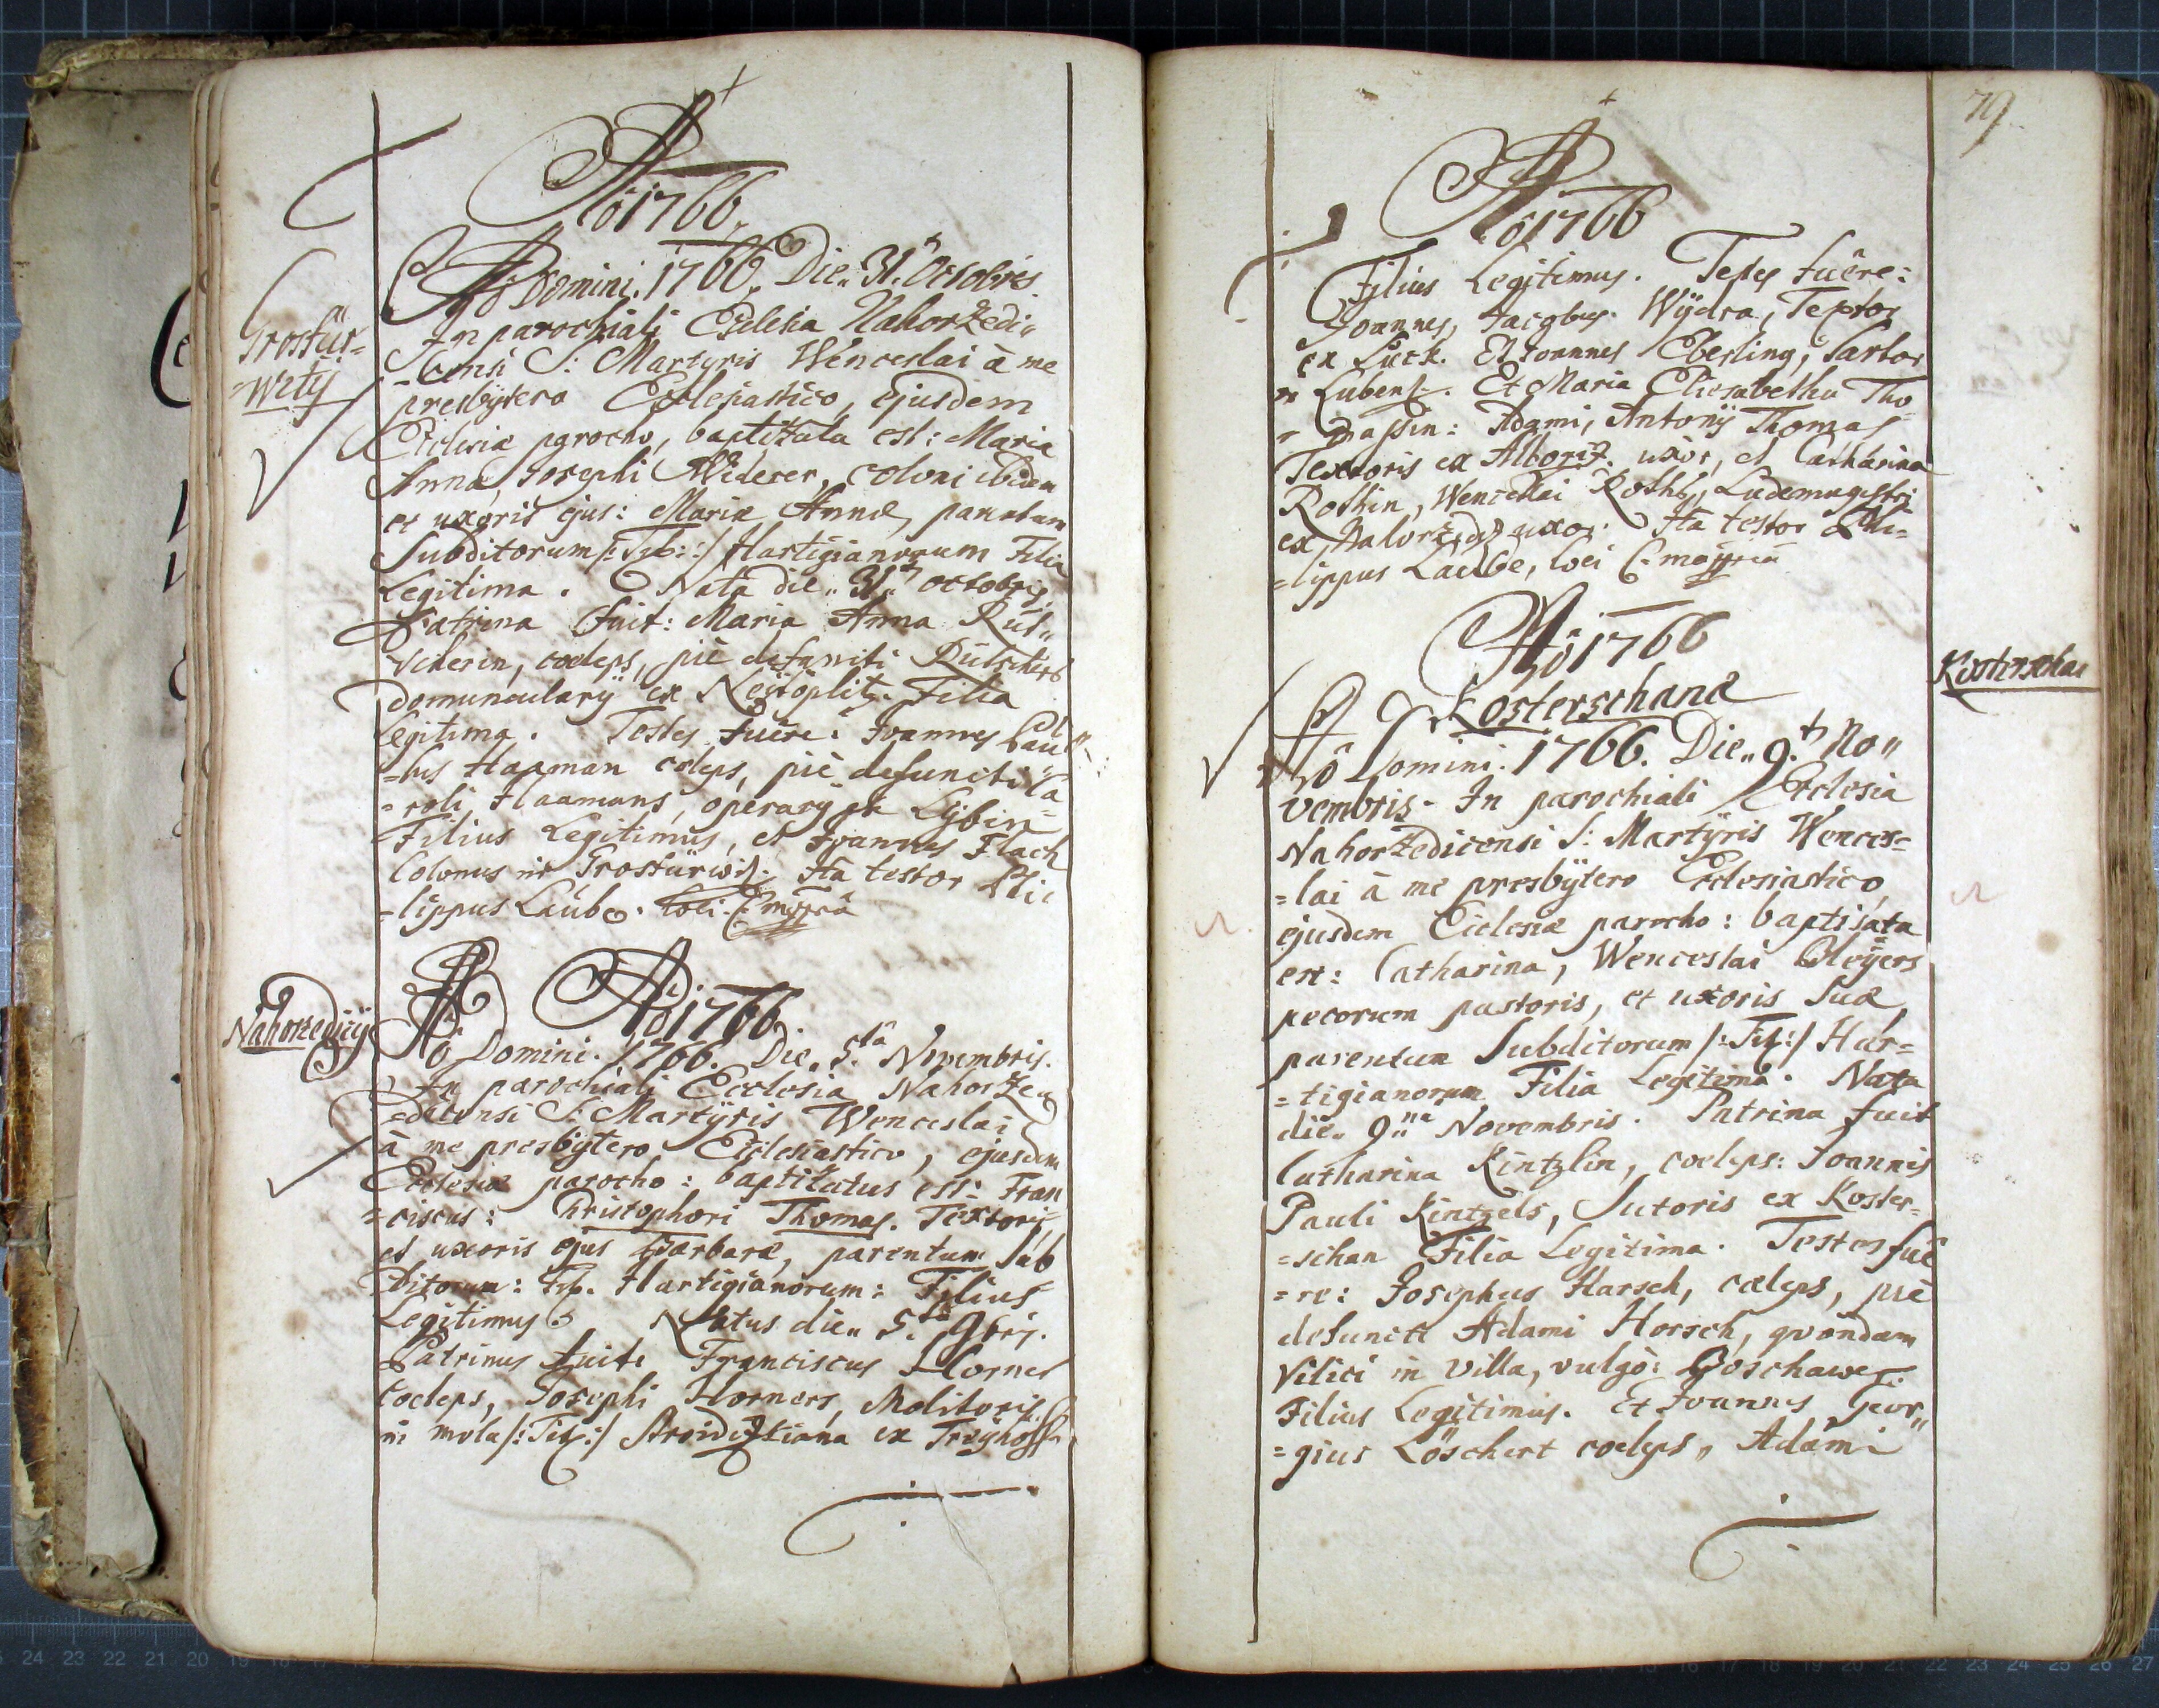 Aõ 1766.
Grostür=
=witz
Aõ Domini. 1766. Die„ 31.† Octobris.
In parochiali Ecclesia Nahoržedi„
=censi S: Martyris Wenceslai à me
presbÿtero Ecclesiastico, ejusdem
Ecclesiæ parocho, baptižata est: Maria
Anna, Josephi Widerer, coloni ibidem
et uxoris ejus: Mariæ Annæ, parentum
Subditorum /: Tit: :/ Hartigianorum Filia
Legitima. Nata die„ 31.† octobris,
Patrina fuit: Maria Anna Rüt„
scherin, coeleps, piè defuncti Rütschers
domuncularÿ ex Neÿtöplitz. Filia
Legitima. Testes fuêre: Joannes Pau„
=lus Haaman cœleps, piè defuncti Ca
=roli Haamans, operarÿ ex Lÿbin=
Filius Legitimus, et Joannes Flach
Colonus in Grostürwitz. Ita testor Phi„
=lippus Laube. loci. C. mppriâ
Aõ 1766.
Nahoržediciÿ
Aõ Domini. 1766. Die„ 5.tâ Novembris.
In parochiali Ecclesia Nahorže„
=dicensi S: Martÿris Wenceslai
à me presbÿtero Ecclesiastico, ejusdem
Ecclesiæ parocho: baptižatus est: Fran
=ciscus: Christophori Thomas. Textoris
et uxoris ejus Barbaræ, parentum Sub
ditorum: Tit. Hartigianorum: Filius
Legitimus. Natus die„ 5.tâ 9bris.
Patrinus fuit: Franciscus Horner
coeleps, Josephi Horners, Molitoris
in mola /: Tit: :/ ex Treÿhoff
79
Aõ 1766
Filius Legitimus. Testes fuêre:
Joannes, Jacobus Wÿdra, Textor
ex Luck. Et Joannes Eberling, Sartor
in Lubentz. Et Maria Eliesabetha Tho=
=massin: Adami, Antonÿ Thomas
Textoris ex Alboritz. uxor, et Catharina
Rothin, Wenceslai Roths, Ludemagistri
ex Nahoržeditz uxor. Ita testor Phi=
=lippus Laube, loci C. mppriâ
Aõ 1766
Kosterschanæ
Kosterschan
Aõ Domini. 1766. Die„ 9.† No„
vembris. In parochiali Ecclesia
Nahoržedicensi S: Martÿris Wences=
=lai à me presbÿtero Ecclesiastico,
ejusdem Ecclesiæ parocho: baptisata
est: Catharina, Wenceslai Meÿers
pecorum pastoris, et uxoris Suæ,
parentum Subditorum /: Tit: :/ Har=
=tigianorum Filia Legitima. Nata
die„ 9.na Novembris. Patrina fuit
Catharina Kintzlin, coeleps: Joannis
Pauli Kintzels, Sutoris ex Koster=
=schan Filia Legitima. Testes fuê
=re: Josephus Harsch, cœleps, piè
defuncti Adami Horsch, quondam
Vilici in villa, vulgò: Goschawetz.
Filius Legitimus. Et Joannes Geor„
=gius Löschert coeleps, Adami